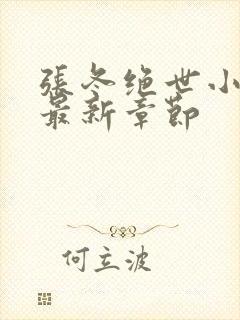 張冬绝世小
最新章節
何立波